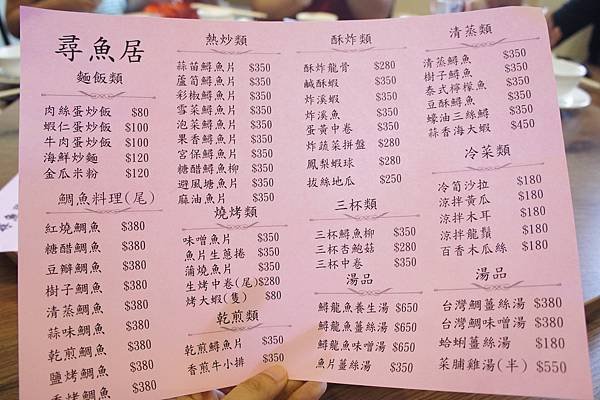 尋魚居
麵飯類
肉絲蛋炒飯 $80
蝦仁蛋炒飯 $100
牛肉蛋炒飯 $100
海鮮炒麵 $120
金瓜米粉 $120
鯛魚料理(尾)
紅燒鯛魚 $380
糖醋鯛魚 $380
豆瓣鯛魚 $380
樹子鯛魚 $380
清蒸鯛魚 $380
蒜味鯛魚 $380
乾煎鯛魚 $380
鹽烤鯛魚 $380
香烤鯛魚 $380
熱炒類
蒜苗鱘魚片 $350
蘆筍鱘魚片 $350
彩椒鱘魚片 $350
雪菜鱘魚片 $350
泡菜鱘魚片 $350
果香鱘魚片 $350
宮保鱘魚片 $350
糖醋鱘魚柳 $350
避風塘魚片 $350
麻油魚片 $350
燒烤類
味噌魚片 $350
魚片生蔥捲 $350
蒲燒魚片 $350
生烤中卷(尾) $280
烤大蝦(隻) $80
乾煎類
乾煎鱘魚片 $350
香煎牛小排 $350
酥炸類
酥炸龍骨 $280
鹹酥蝦 $350
炸溪蝦 $350
炸溪魚 $350
蛋黃中卷 $350
炸蔬菜拼盤 $280
鳳梨蝦球 $280
拔絲地瓜 $250
三杯類
三杯鱘魚柳 $350
三杯杏鮑菇 $280
三杯中卷 $350
湯品
鱘龍魚養生湯 $650
鱘龍魚薑絲湯 $650
鱘龍魚味噌湯 $650
魚片薑絲湯 $350
清蒸類
清蒸鱘魚 $350
樹子鱘魚 $350
泰式檸檬魚 $350
豆酥鱘魚 $350
蠔油三絲鱘 $350
蒜香海大蝦 $450
冷菜類
冷筍沙拉 $180
涼拌黃瓜 $180
涼拌木耳 $180
涼拌龍鬚 $180
百香木瓜絲 $180
湯品
台灣鯛薑絲湯 $380
台灣鯛味噌湯 $380
蛤蜊薑絲湯 $180
菜脯雞湯(半) $550